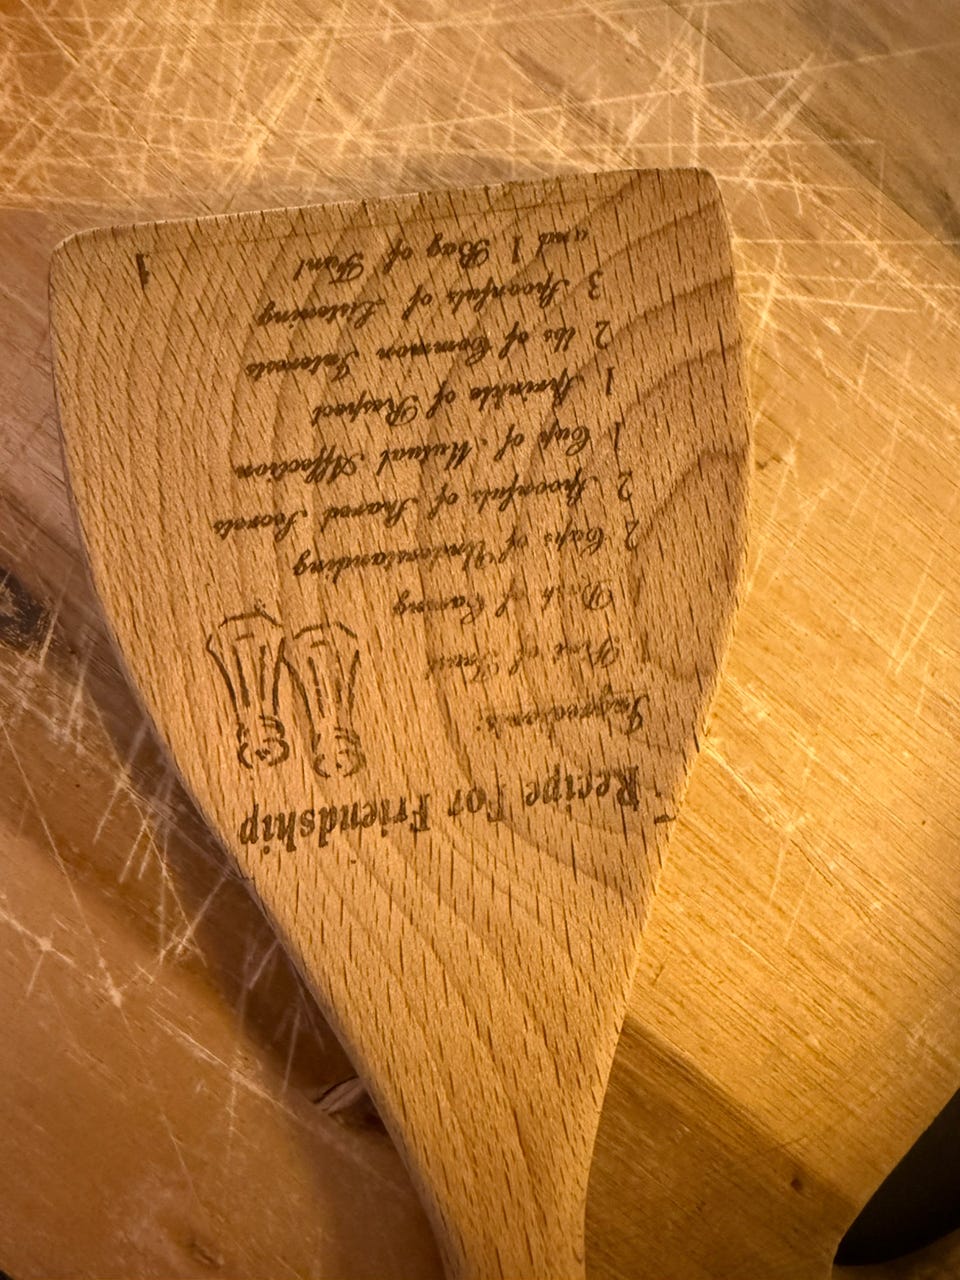 Recipe For Friendship
Ingredients:
of Trust
Dash of Caring
2 Cups of Understanding
2 Spoonfuls of Shared Secrets
1 Cup of Mutual Affection
1 Sprinkle of Respect
2 lbs of Common Interests
3 Spoonfuls of Listening
and 1 Bag of Fun!